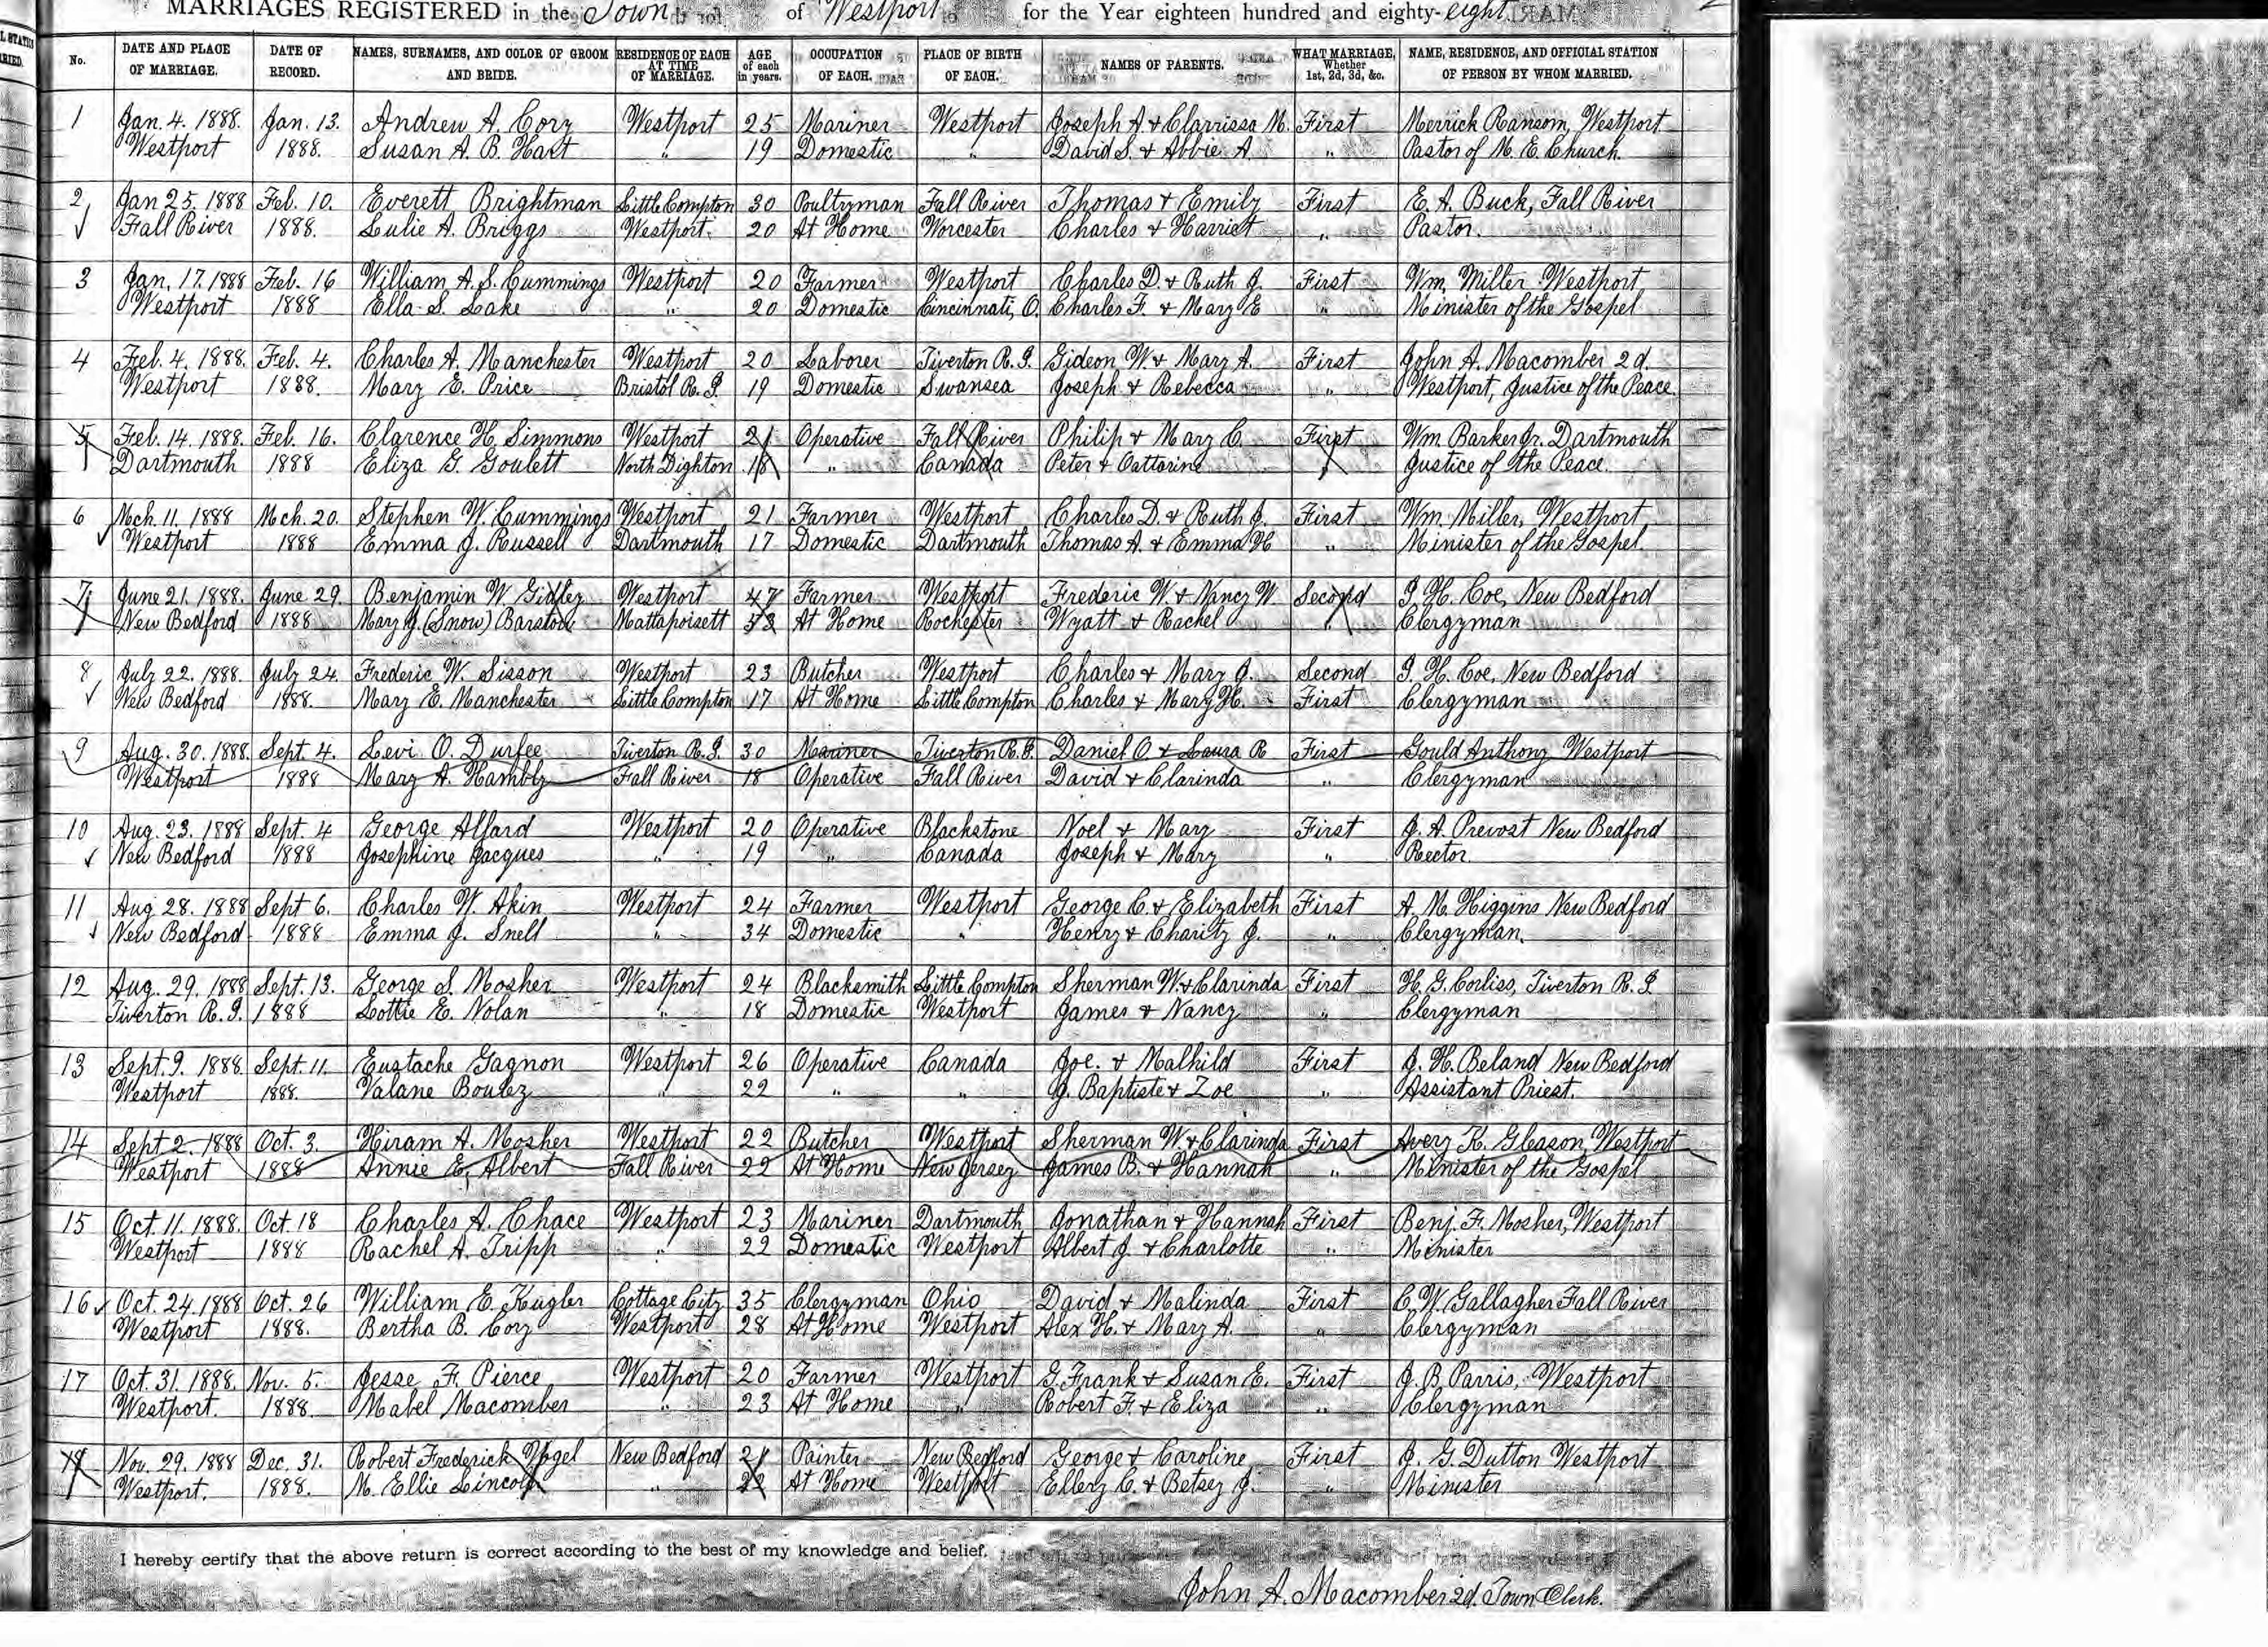 MARRIAGES REGISTERED in the Town of Westport for the Year eighteen hundred and eighty-eight
No. DATE AND PLACE OF MARRIAGE. DATE OF RECORD. NAMES, SURNAMES, AND COLOR OF GROOM AND BRIDE. RESIDENCE OF EACH AT TIME OF MARRIAGE. AGE of each in years. OCCUPATION OF EACH. PLACE OF BIRTH OF EACH. NAMES OF PARENTS. WHAT MARRIAGE, Whether 1st, 2d, 3d, &c. NAME, RESIDENCE, AND OFFICIAL STATION OF PERSON BY WHOM MARRIED.
1 Jan. 4. 1888. Jan. 13. Andrew A Cory Westport 25 Mariner Westport Joseph A + Clarrissa M. First Merrick Ransom, Westport
Westport 1888. Susan A. B. Hart " 19 Domestic " David S. + Abbie A. " Pastor of M. E. Church.
2 Jan 25. 1888 Feb. 10. Everett Brightman Little Compton 30 Poultryman Fall River Thomas + Emily First E. A. Buck, Fall River
Fall River 1888. Lulie A. Briggs Westport. 20 At Home Worcester Charles + Harriet " Pastor.
3 Jan. 17. 1888 Feb. 16 William A. S. Cummings Westport 20 Farmer Westport Charles D. + Ruth J. First Wm. Miller Westport
Westport 1888 Ella S. Lake " 20 Domestic Cincinnati, O. Charles F. + Mary E " Minister of the Gospel
4 Feb. 4. 1888. Feb. 4. Charles A. Manchester Westport 20 Laborer Tiverton R. I. Gideon W. + Mary A. First John A. Macomber 2d.
Westport 1888. Mary E. Price Bristol R. I. 19 Domestic Swansea Joseph + Rebecca " Westport, Justice of the Peace.
5 Feb. 14. 1888. Feb. 16. Clarence H. Simmons Westport 21 Operative Fall River Philip + Mary C. First Wm. Barker Jr. Dartmouth
Dartmouth 1888 Eliza G. Goulett North Dighton 18 " Canada Peter + Cattarine " Justice of the Peace.
6 Mch. 11. 1888 Mch. 20. Stephen W. Cummings Westport 21 Farmer Westport Charles D. + Ruth J. First Wm. Miller, Westport
Westport 1888 Emma J. Russell Dartmouth 17 Domestic Dartmouth Thomas A. + Emma H " Minister of the Gospel.
7 June 21. 1888. June 29. Benjamin W. Gidley Westport 47 Farmer Westport Frederic W. + Nancy W. Second I. H. Coe, New Bedford
New Bedford 1888 Mary J. (Snow) Barstow Mattapoisett At Home Rochester Wyatt + Rachel " Clergyman
8 July 22. 1888. July 24. Frederic W. Sisson Westport 23 Butcher Westport Charles + Mary J. Second I. H. Coe, New Bedford
New Bedford 1888. Mary E. Manchester Little Compton 17 At Home Little Compton Charles + Mary H. First Clergyman
9 Aug. 30. 1888. Sept. 4. Levi O. Durfee Tiverton R. I. 30 Mariner Tiverton R. I. Daniel O. + Laura R First Gould Anthony Westport
Westport 1888 Mary A. Hambly Fall River 18 Operative Fall River David + Clarinda " Clergyman
10 Aug. 23. 1888 Sept. 4 George Allard Westport 20 Operative Blackstone Noel + Mary First J. A. Prevost New Bedford
New Bedford 1888 Josephine Jacques " 19 " Canada Joseph + Mary " Rector.
11 Aug 28. 1888 Sept 6. Charles W. Akin Westport 24 Farmer Westport George C. + Elizabeth First A. M. Higgins New Bedford
New Bedford 1888 Emma J. Snell " 34 Domestic " Henry + Charity J. " Clergyman.
12 Aug. 29. 1888 Sept. 13. George S. Mosher Westport 24 Blacksmith Little Compton Sherman W. + Clarinda First H. G. Corliss, Tiverton R. I.
Tiverton R. I. 1888 Lottie E. Nolan " 18 Domestic Westport James + Nancy " Clergyman
13 Sept. 9. 1888. Sept. 11. Eustache Gagnon Westport 26 Operative Canada Joe. + Malhild First J. H. Beland New Bedford
Westport 1888. Valane Bouley " 22 " " J. Baptiste + Zoe " Assistant Priest.
14 Sept 2. 1888 Oct. 3. Hiram A. Mosher Westport 22 Butcher Westport Sherman W. + Clarinda First Avery K. Gleason, Westport
Westport 1888 Annie E. Albert Fall River 22 At Home New Jersey James B. + Hannah " Minister of the Gospel
15 Oct. 11. 1888. Oct. 18 Charles A. Chace Westport 23 Mariner Dartmouth Jonathan + Hannah First Benj. F. Mosher, Westport
Westport 1888 Rachel A. Tripp " 22 Domestic Westport Albert J. + Charlotte " Minister
16 Oct. 24. 1888 Oct. 26 William E. Kugler Cottage City 35 Clergyman Ohio David + Malinda First C. W. Gallagher Fall River
Westport 1888. Bertha B. Cory Westport 28 At Home Westport Alex H. + Mary A. " Clergyman
17 Oct. 31. 1888. Nov. 5. Jesse F. Pierce Westport 20 Farmer Westport G. Frank + Susan E. First J. B. Parris, Westport
Westport. 1888. Mabel Macomber " 23 At Home " Robert F. + Eliza " Clergyman
18 Nov. 29. 1888 Dec. 31. Robert Frederick Vogel New Bedford 21 Painter New Bedford George + Caroline First J. G. Dutton Westport
Westport. 1888. M. Ellie Lincoln " 22 At Home Westport Ellery C. + Betsey J. " Minister
I hereby certify that the above return is correct according to the best of my knowledge and belief.
John A. Macomber 2d. Town Clerk.